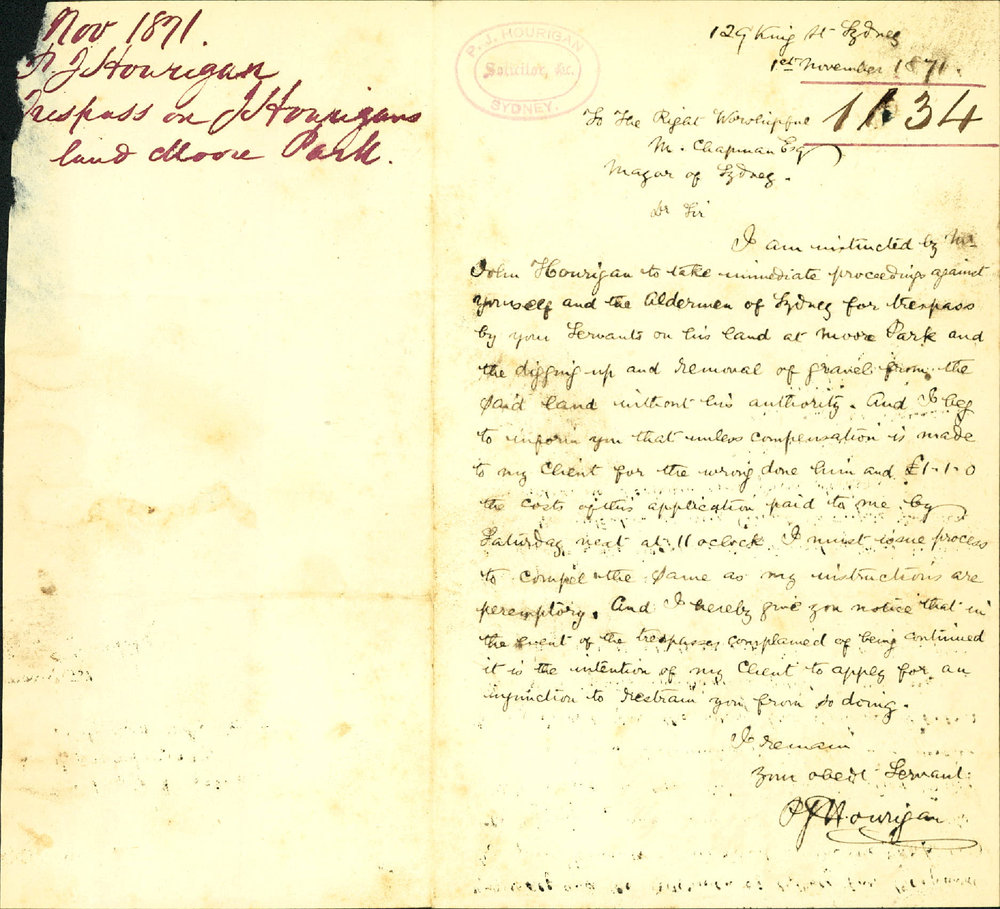 Nov 1871.
P. J Hourigan
Trespass on J Hourigans
land Moore Park.
P. J. HOURIGAN
Solicitor, &c.
SYDNEY.
129 King St Sydney
1st November 1871.
1134
To The Right Worshipful
M. Chapman Esq
Mayor of Sydney.
Dr Sir
I am instructed by Mr
John Hourigan to take immediate proceedings against
yourself and the Aldermen of Sydney for trespass
by your Servants on his land at Moore Park and
the digging up and removal of gravel from the
said land without his authority. And I beg
to inform you that unless compensation is made
to my Client for the wrong done him and £1-1-0
the costs of this application paid to me by
Saturday next at 11 oclock I must issue process
to compel the same as my instructions are
peremptory. And I hereby give you notice that in
the event of the trespasses complained of being continued
it is the intention of my Client to apply for an
injunction to restrain you from so doing.
I remain
Your obedt Servant
P J Hourigan